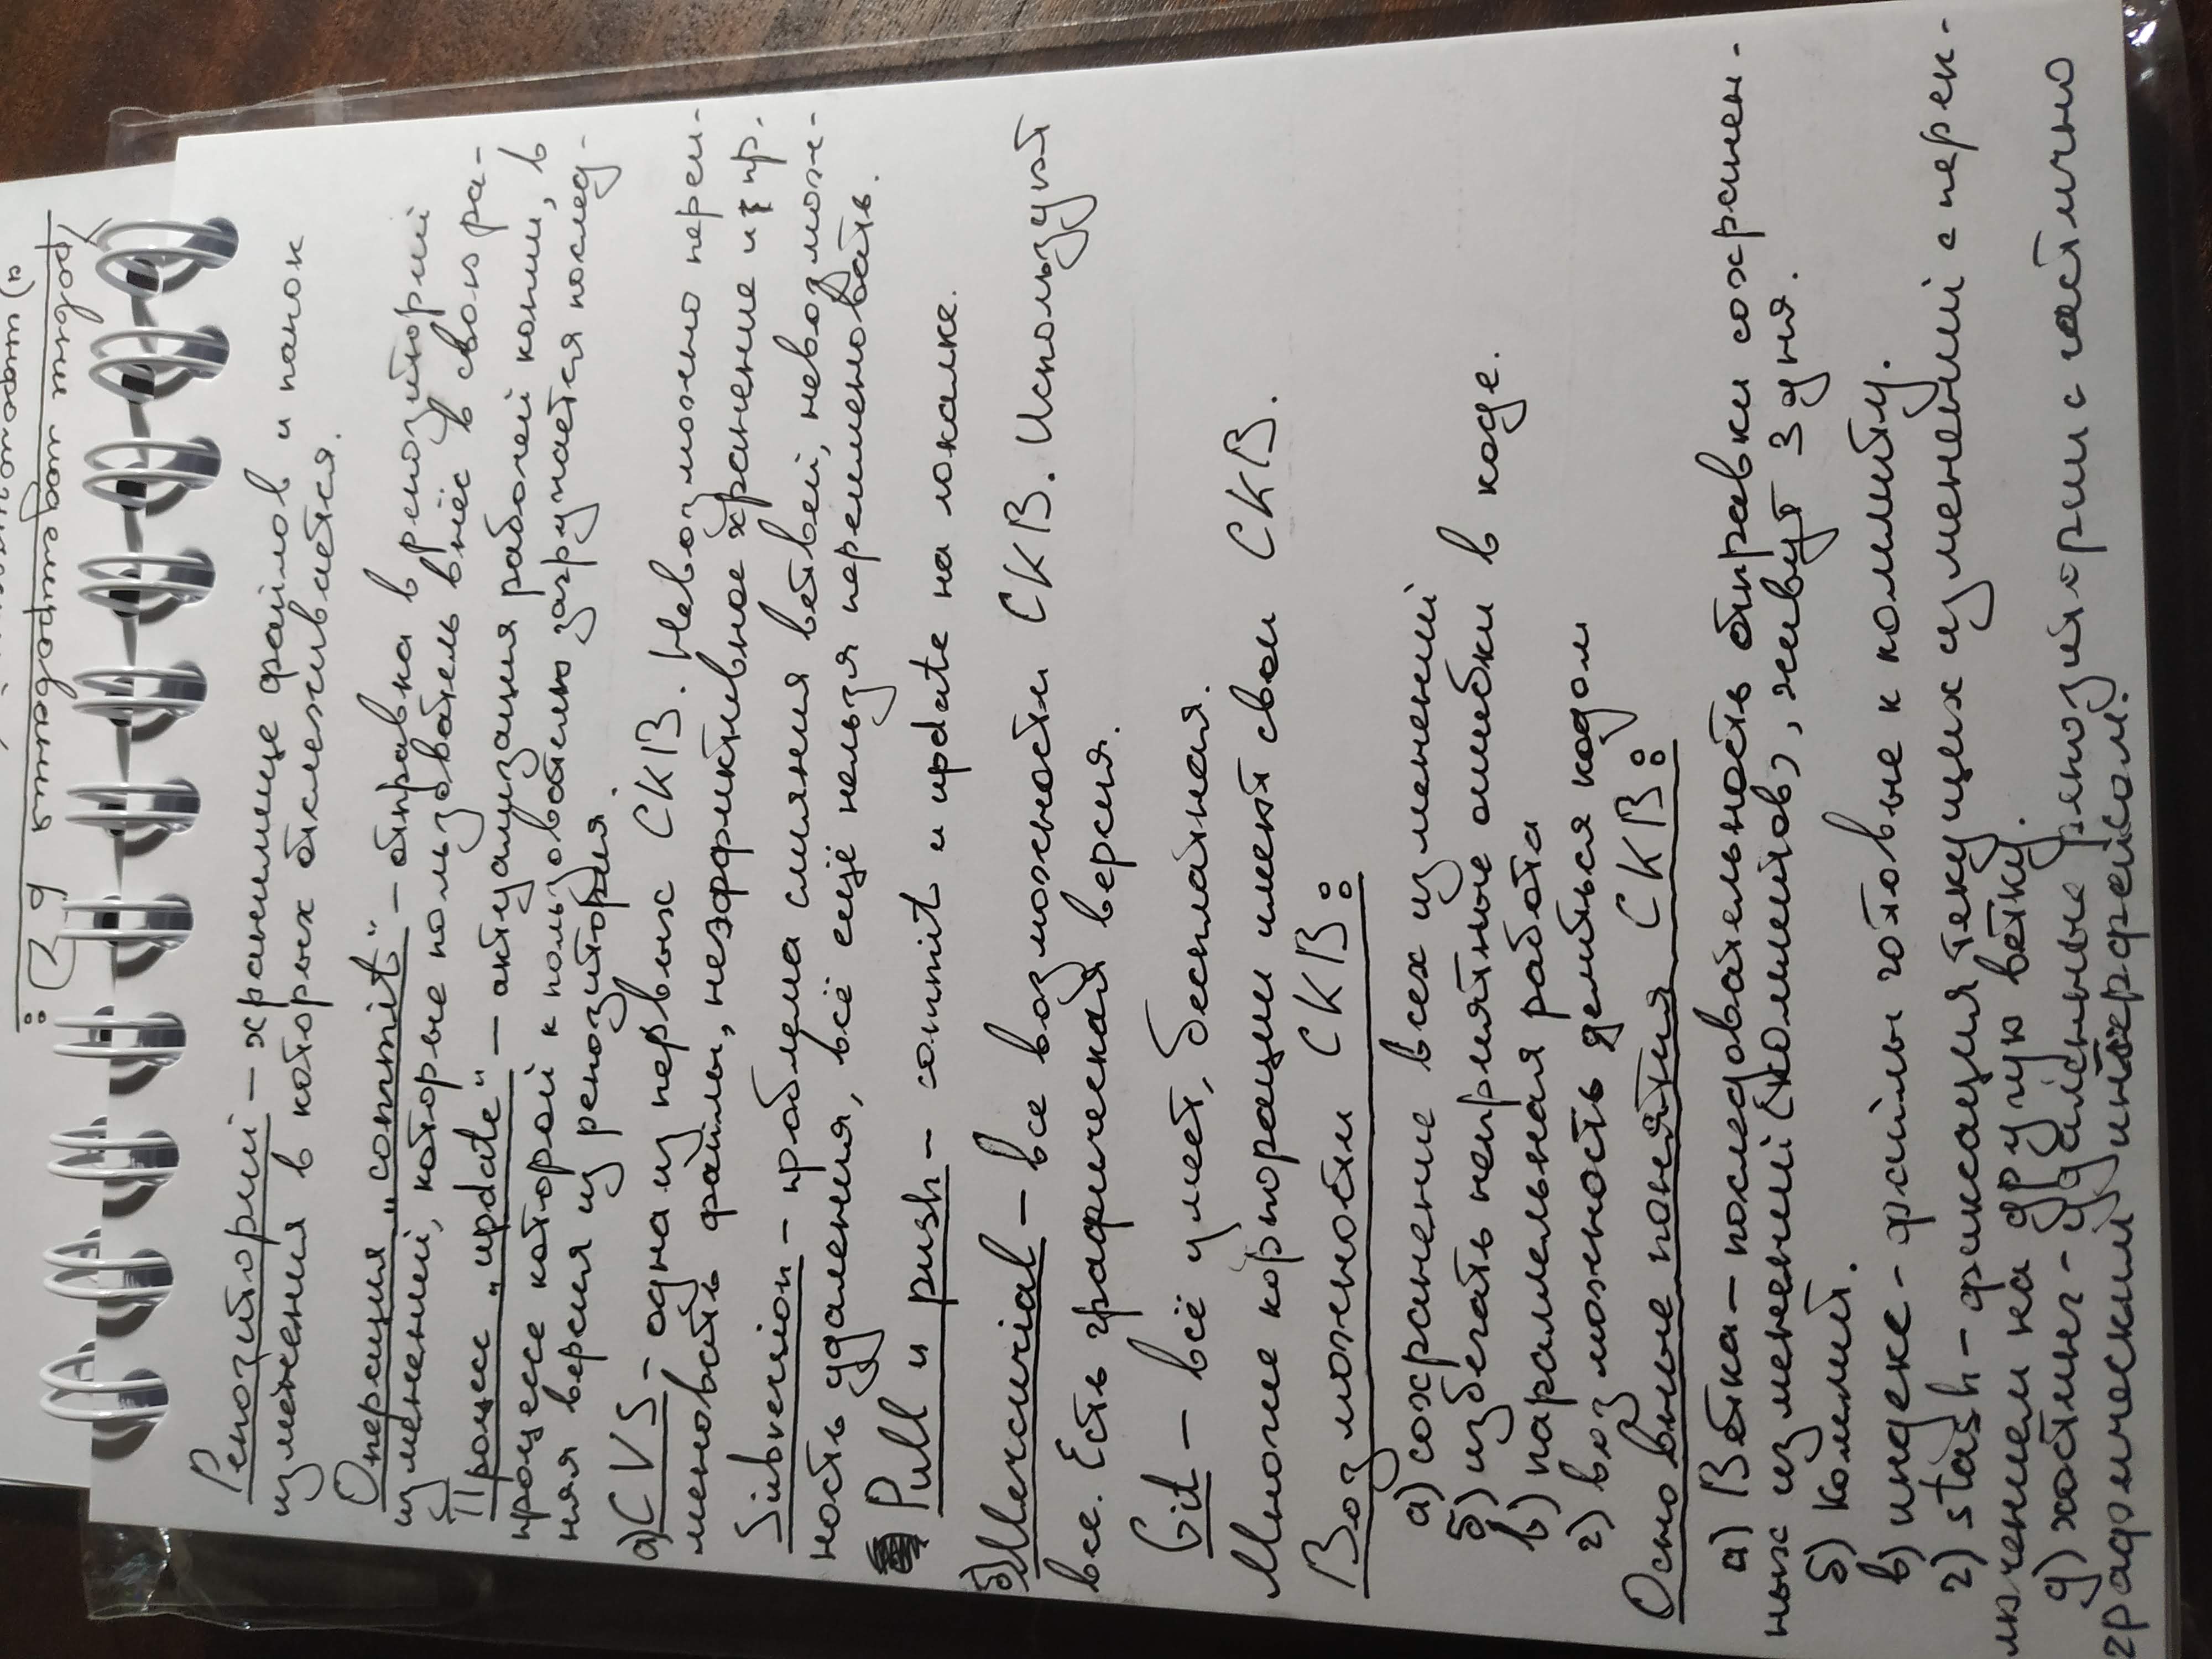 а)
Уровни моделирования БД:
Репозиторий – хранилище файлов и папок
изменения в которых отслеживается.
Операция „commit“ – отправка в репозиторий
изменений, которые пользователь внёс в свою ра-
Процесс „update“ – актуализация рабочей копии, в
процессе которой к пользователю загружается послед-
няя версия из репозитория.
а) CVS – одна из первых СКВ. Невозможно переи-
меновать файлы, неэффиктивное хранение из пр.
Subversion – проблема слияния ветвей, невозмож-
ность удаления, всё ещё нельзя переименовать.
Pull и push – commit и update на локалке.
б) Mercurial – все возможности СКВ. Используют
все. Есть графическая версия.
Git – всё умеет, бесплатная.
Многие корпорации имеют свои СКВ.
Возможности СКВ:
а) сохранение всех изменений
б) избегать неприятные ошибки в коде.
в) параллельная работа
г) возможность делиться кодом
Основные понятия СКВ:
а) Ветка – последовательность отправки сохранен-
ных изменений (коммитов), живут 3 дня.
б) Коммит.
в) индекс – файлы готовые к коммиту.
г) stash – фиксация текущих изменений с перек-
лючением на другую ветку.
д) хостинг – удаленные репозитории с частично
графическим интерфейсом.